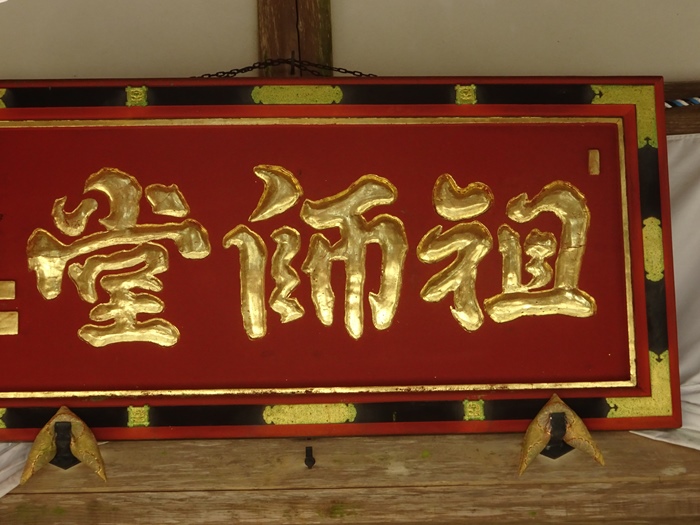 祖師堂